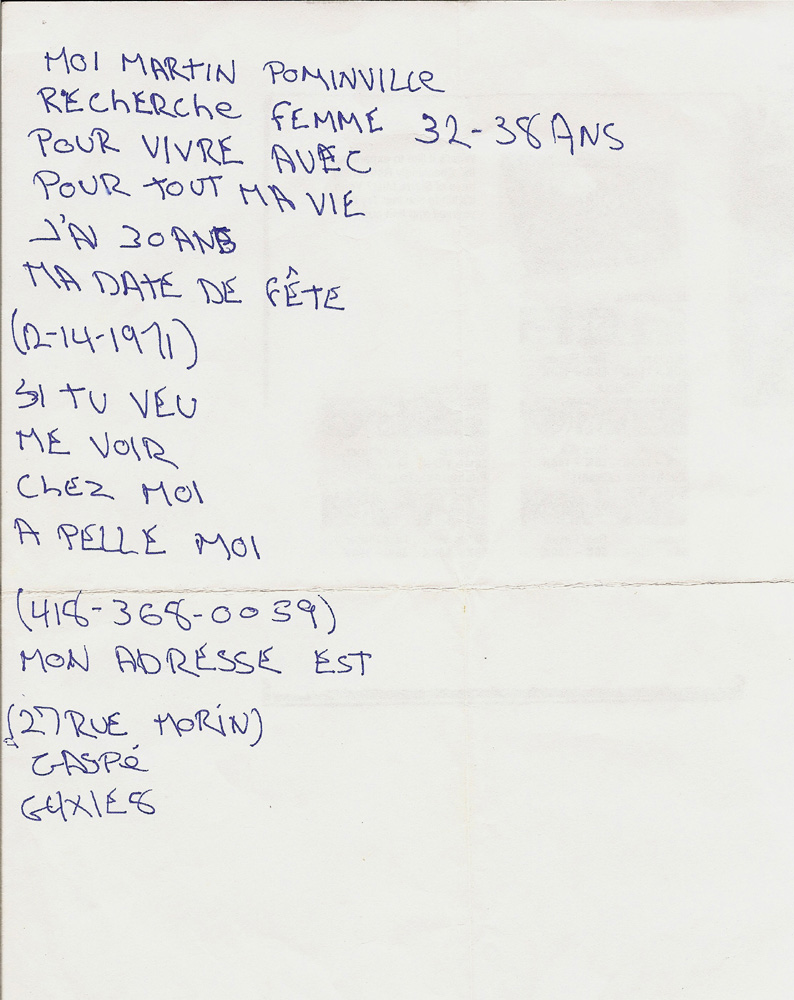 MOI MARTIN POMINVILLE
RECHERCHE FEMME 32-38 ANS
POUR VIVRE AVEC
POUR TOUT MA VIE
J'AI 30 ANS
MA DATE DE FÊTE
(12-14-1971)
SI TU VEU
ME VOIR
CHEZ MOI
A PELLE MOI
(418-368-0059)
MON ADRESSE EST
(27 RUE MORIN)
GASPÉ
G4X1E8